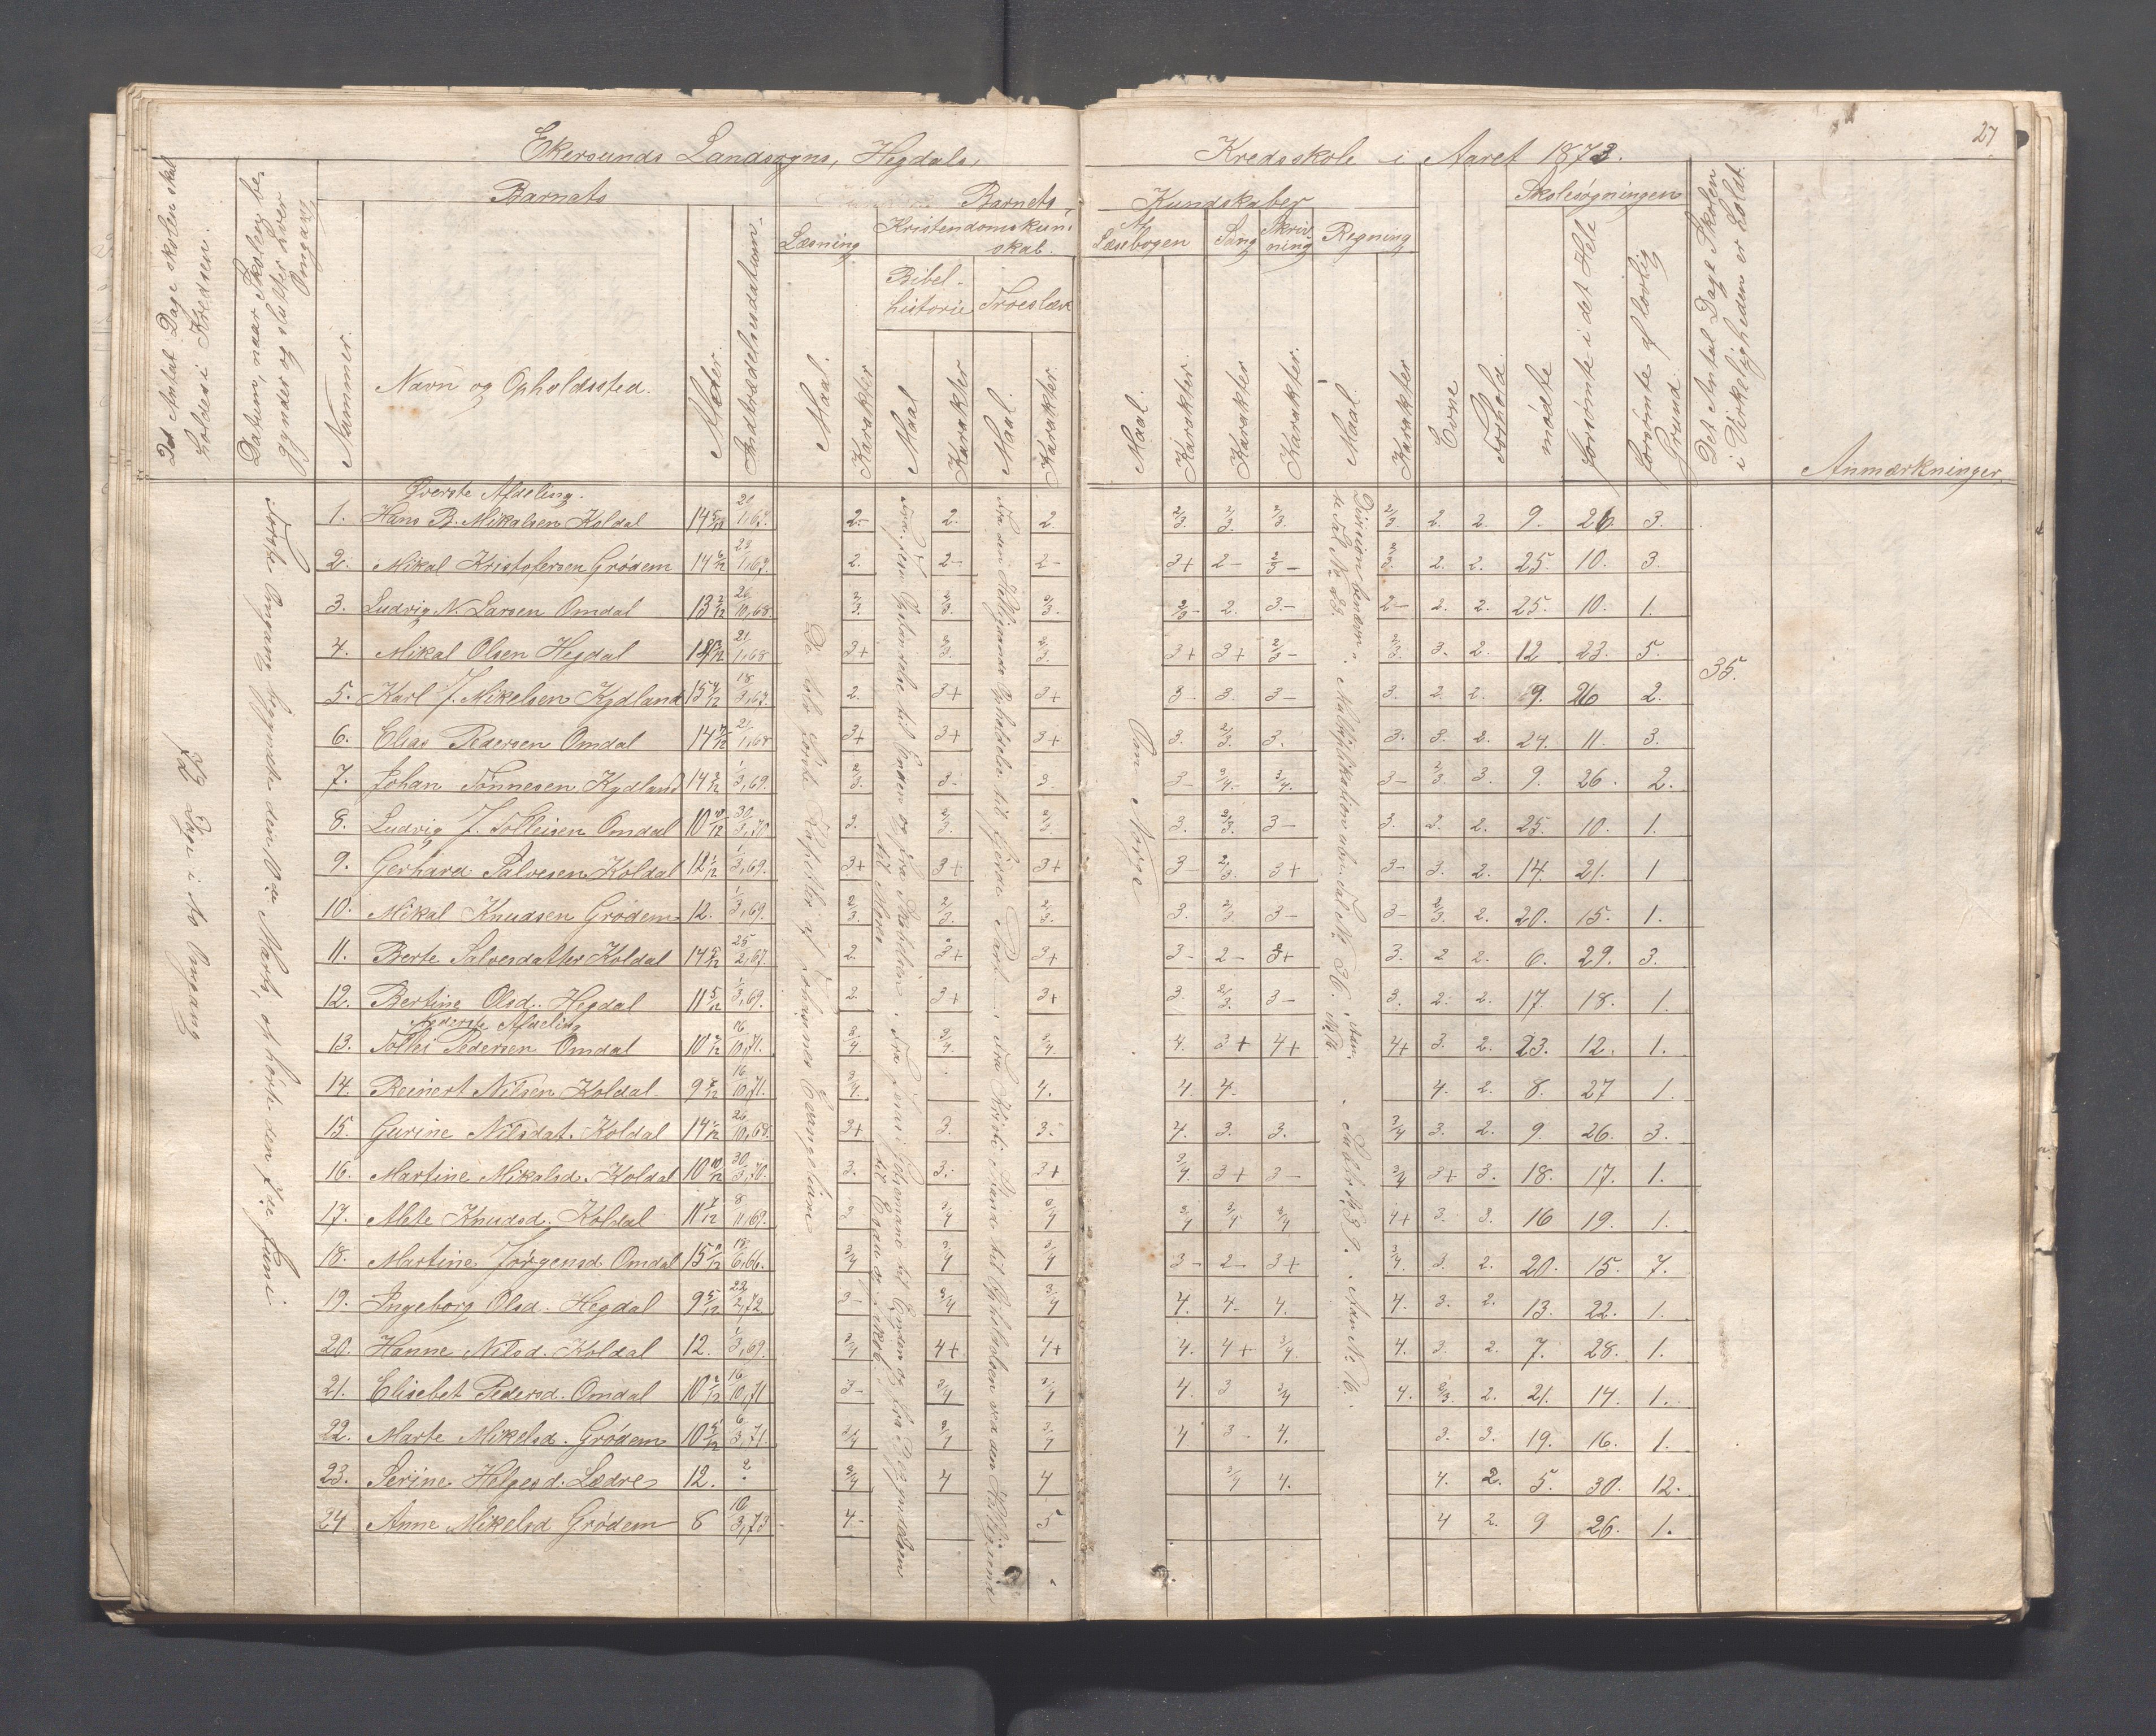 27
Ekersunds Landsogns, Hegdals, Kredsskole i Aaret 1873.
Det Antal Dage skolen skal holdes i Kredsen.
Datum, naar Skolen begynder og slutter hver Omgang
Barnets
Nummer.
Navn og Opholdssted.
Alder.
Indtrædelsesdatum.
Barnets Kundskaber
Læsning
Maal.
Karakter
Kristendomskundskab.
Bibelhistorie
Maal
Karakter
Troeslære
Maal.
Karakter.
Af Læsebogen
Maal.
Karakter.
Sang
Karakter
Skrivning
Karakter.
Regning
Maal.
Karakter
Evne
Forhold.
Skolesøgningen
mødte
forsømte i det Hele
forsømte af lovlig Grund.
Det Antal Dage Skolen i Virkeligheden er holdt.
Anmærkninger.
Øverste Afdeling.
1. Hans B. Mikalsen Koldal 14 5/12 2- 2. 2. 2/3. 2/3. 2/3. 2/3. 2. 2. 9. 26. 3.
2. Mikal Kristofersen Grødem 14 2. 2- 2- 3+ 2- 2/3- 2/3. 2. 2. 25. 10. 3.
3. Ludvig N. Larsen Omdal 13 2/12 26/10,68. 2/3. 2/3. 2/3. 2/3- 2. 3.- 2- 2. 2. 25. 10. 1.
4. Mikal Olsen Hegdal 21/1,68 3+ 2/3. 2/3. 3+ 3+ 2/3- 2/3. 3. 2. 12 23. 5.
5. Karl J. Mikelsen Kydland 15 18/3,67. 2. 3+ 3+ 3- 3. 3- 3. 2. 2. 9. 26 2.
6. Elias Pedersen Omdal 14 21/1,68 3+ 3+ 3+ 3. 2/3. 3. 3. 3. 2. 24. 11. 3.
7. Johan Tønnesen Kydland 14 1/3,69. 2/3. 3- 3. 3- 3/4. 3/4. 3- 2/3. 3. 9. 26. 2.
8. Ludvig J. Tolleisen Omdal 10 30/3,70 3. 2/3. 2/3. 3. 2/3. 3- 3. 2. 2. 25. 10. 1.
9. Gerhard Salvesen Koldal 12 1/12 1/3,69. 3+ 3+ 3+ 3- 2/3. 3+ 3- 3. 2. 14. 21. 1
10. Mikal Knudsen Grødem 12. 1/3,69. 2/3. 2/3. 2/3. 3. 2/3 3- 3- 2/3. 2. 20. 15. 1.
11. Berte Salvesdatter Koldal 14 5/12 25/2,67. 2. 3+ 3+ 3- 2- 3+ 3. 2 2. 6. 29. 3.
12. Bertine Olsd. Hegdal 11 5/12 1/3,69. 2 3+ 3+ 3. 2/3. 3- 3. 2. 2. 17. 18. 1.
Nederste Afdeling
13. Tolleif Pedersen Omdal 10 16/10,71. 3/4. 3/4. 3/4. 4. 3+ 4+ 4+ 3. 2. 23. 12. 1.
14. Reinert Nilsen Koldal 9 16/10,71. 3/4. 4. 4. 4. 4. 2. 8. 27 1.
15. Gurine Nilsdat. Koldal 14 3+ 3. 3. 4. 3. 3. 3/4 3. 2. 9. 26. 3.
16. Martine Mikalsd. Koldal 10 10/12 30/3,70. 3. 3. 3+ 3/4. 3+ 3- 3/4 3+ 3. 18. 17. 1.
17. Alete Knudsd. Koldal 11 8/11,69. 3 3/4 3/4 3/4 3/4 3/4 4+ 3. 3. 16 19. 1.
18. Martine Jørgensd Omdal 15 3/4 3/4 3/4 3- 2- 3+ 3/4. 3. 2. 20. 15. 7.
19. Ingeborg Olsd. Hegdal 9 5/12 22/2,72 3- 3/4 3/4 4. 4. 4. 4. 3. 2. 13. 22. 1.
20. Hanne Nilsd. Koldal 12. 1/3,69. 3/4 4+ 4+ 4. 4+ 3/4. 4. 3. 2. 7. 28. 1.
21. Elisebet Pedersd. Omdal 10 16/10,71 3- 3/4 3/4 4. 3 3/4 4. 2/3. 2. 21. 14. 1.
22. Marte Mikelsd. Grødem 10 6/3,71. 3/4 3/4 3/4 4 3. 4. 3. 3. 19. 16. 1.
23. Serine Helgesd. Lædre 12. ? 3/4 4 4 3/4 4. 4. 2. 5. 30. 12.
24 Anne Mikelsd Grødem 8 16/3,73 4.- 5 4 2. 9 26. 1.
35.
Dage i to Omgang
Første Omgang begyndte den Marts, ophørte den Juni
De Kapitler af Johannes Evangelium
Fra Jesu Opstandelse til Enden og fra Skabelsen til Moses
Fra Jesus Gethsemane til Enden og fra Begyndelsen til Esau og Jakob.
Om Norge